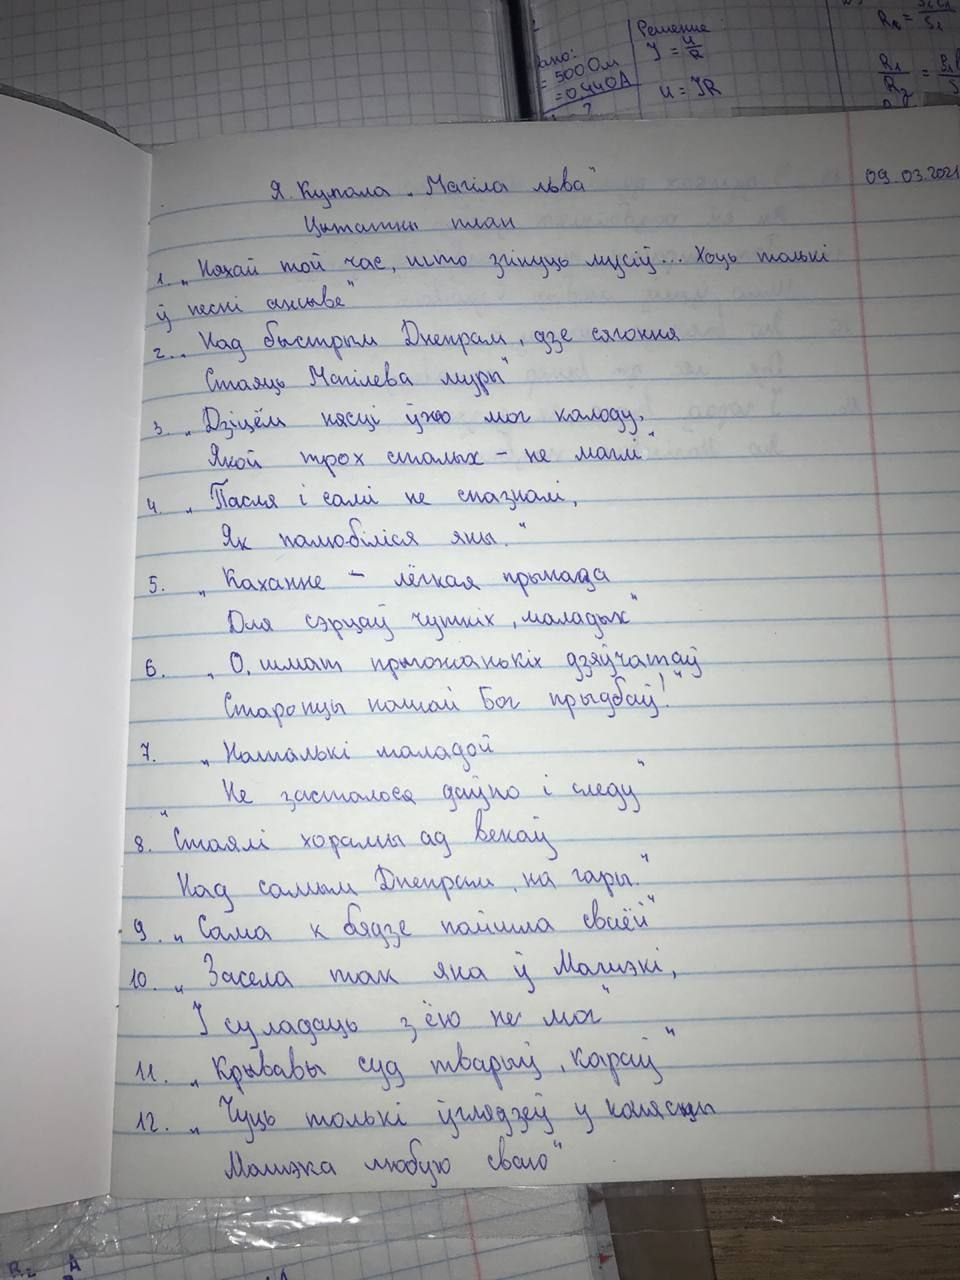 Решение
ано:
= 500 Ом
= 0,440 А
?
J = u/R
u = JR
R₁/R₂ =
Я. Купала „Магіла льва"
09.03.2021
Цытатны план
1. „Няхай той час, што згінуць мусіў... Хоць толькі
ў песні ажыве"
2. „Над быстрым Днепрам, дзе сягоння
Стаяць Магілева муры"
3. „Дзіцём нясці ўжо мог калоду,
Якой трох сталых – не маглі"
4. „Пасля і самі не спазналі,
Як палюбіліся яны."
5. „Каханне – лёгкая прынада
Для сэрцаў чуткіх, маладых"
6. „О, шмат прыгожанькіх дзяўчатаў
Старонцы нашай Бог прыдбаў!"
7. „Наталькі маладой
Не засталося даўно і следу"
8. "Стаялі хорамы ад векаў
Над самым Днепрам, на гары."
9. „Сама к бядзе пайшла сваёй"
10. „Засела так яна ў Машэкі,
І суладаць з ёю не мог"
11. „Крывавы суд тварыў, караў"
12. „Чуць толькі ўглядзеў у калясцы
Машэка любую сваю"